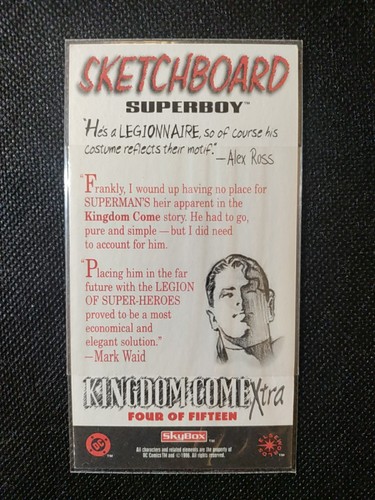 SKETCHBOARD
SUPERBOY™
"He's a LEGIONNAIRE, so of course his
costume reflects their motif."
—Alex Ross
"Frankly, I wound up having no place for
SUPERMAN'S heir apparent in the
Kingdom Come story. He had to go,
pure and simple — but I did need
to account for him.
"Placing him in the far
future with the LEGION
OF SUPER-HEROES
proved to be a most
economical and
elegant solution."
—Mark Waid
KINGDOM COME Xtra
FOUR OF FIFTEEN
SKYBOX™
DC™
All characters and related elements are the property of
DC Comics TM and © 1996. All rights reserved.